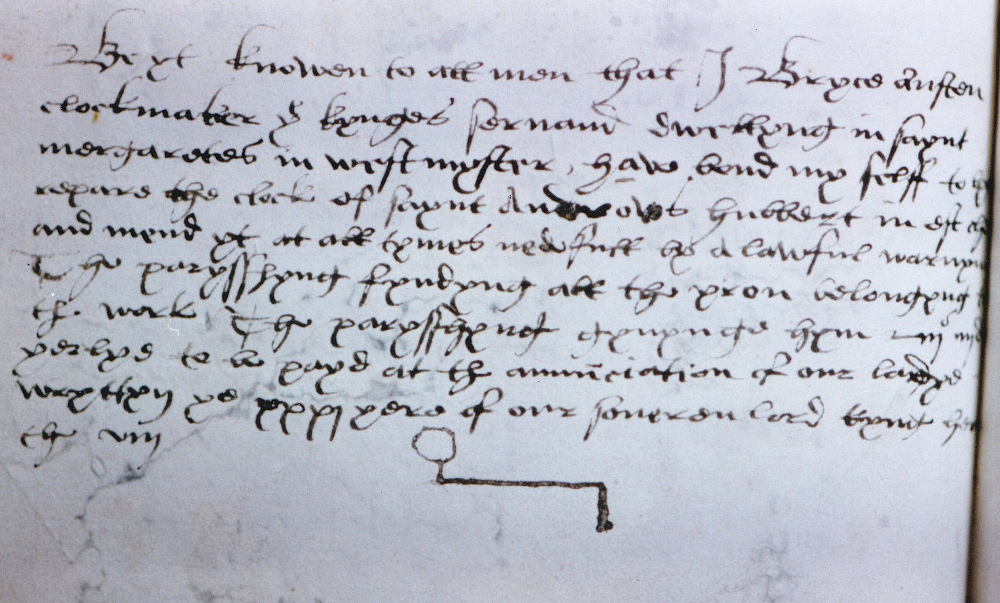 Be yt knowen to all men that I Bryce Austen
clockmaker ye kynges servand dwellyng in saynt
mergaretes in westmyster, have bond my self to
repare the clock of saynt Andrews hubbert in est
and mend yt at all tymes nedefull by a lawful
The paryshyng fyndyng all the yron belongyng
the work The paryshyng gyvynge hym iiij
yerlye to be payd at the annunciation of our ladye
wryttyn ye xxxj yere of our soveren lord kyng
the viij